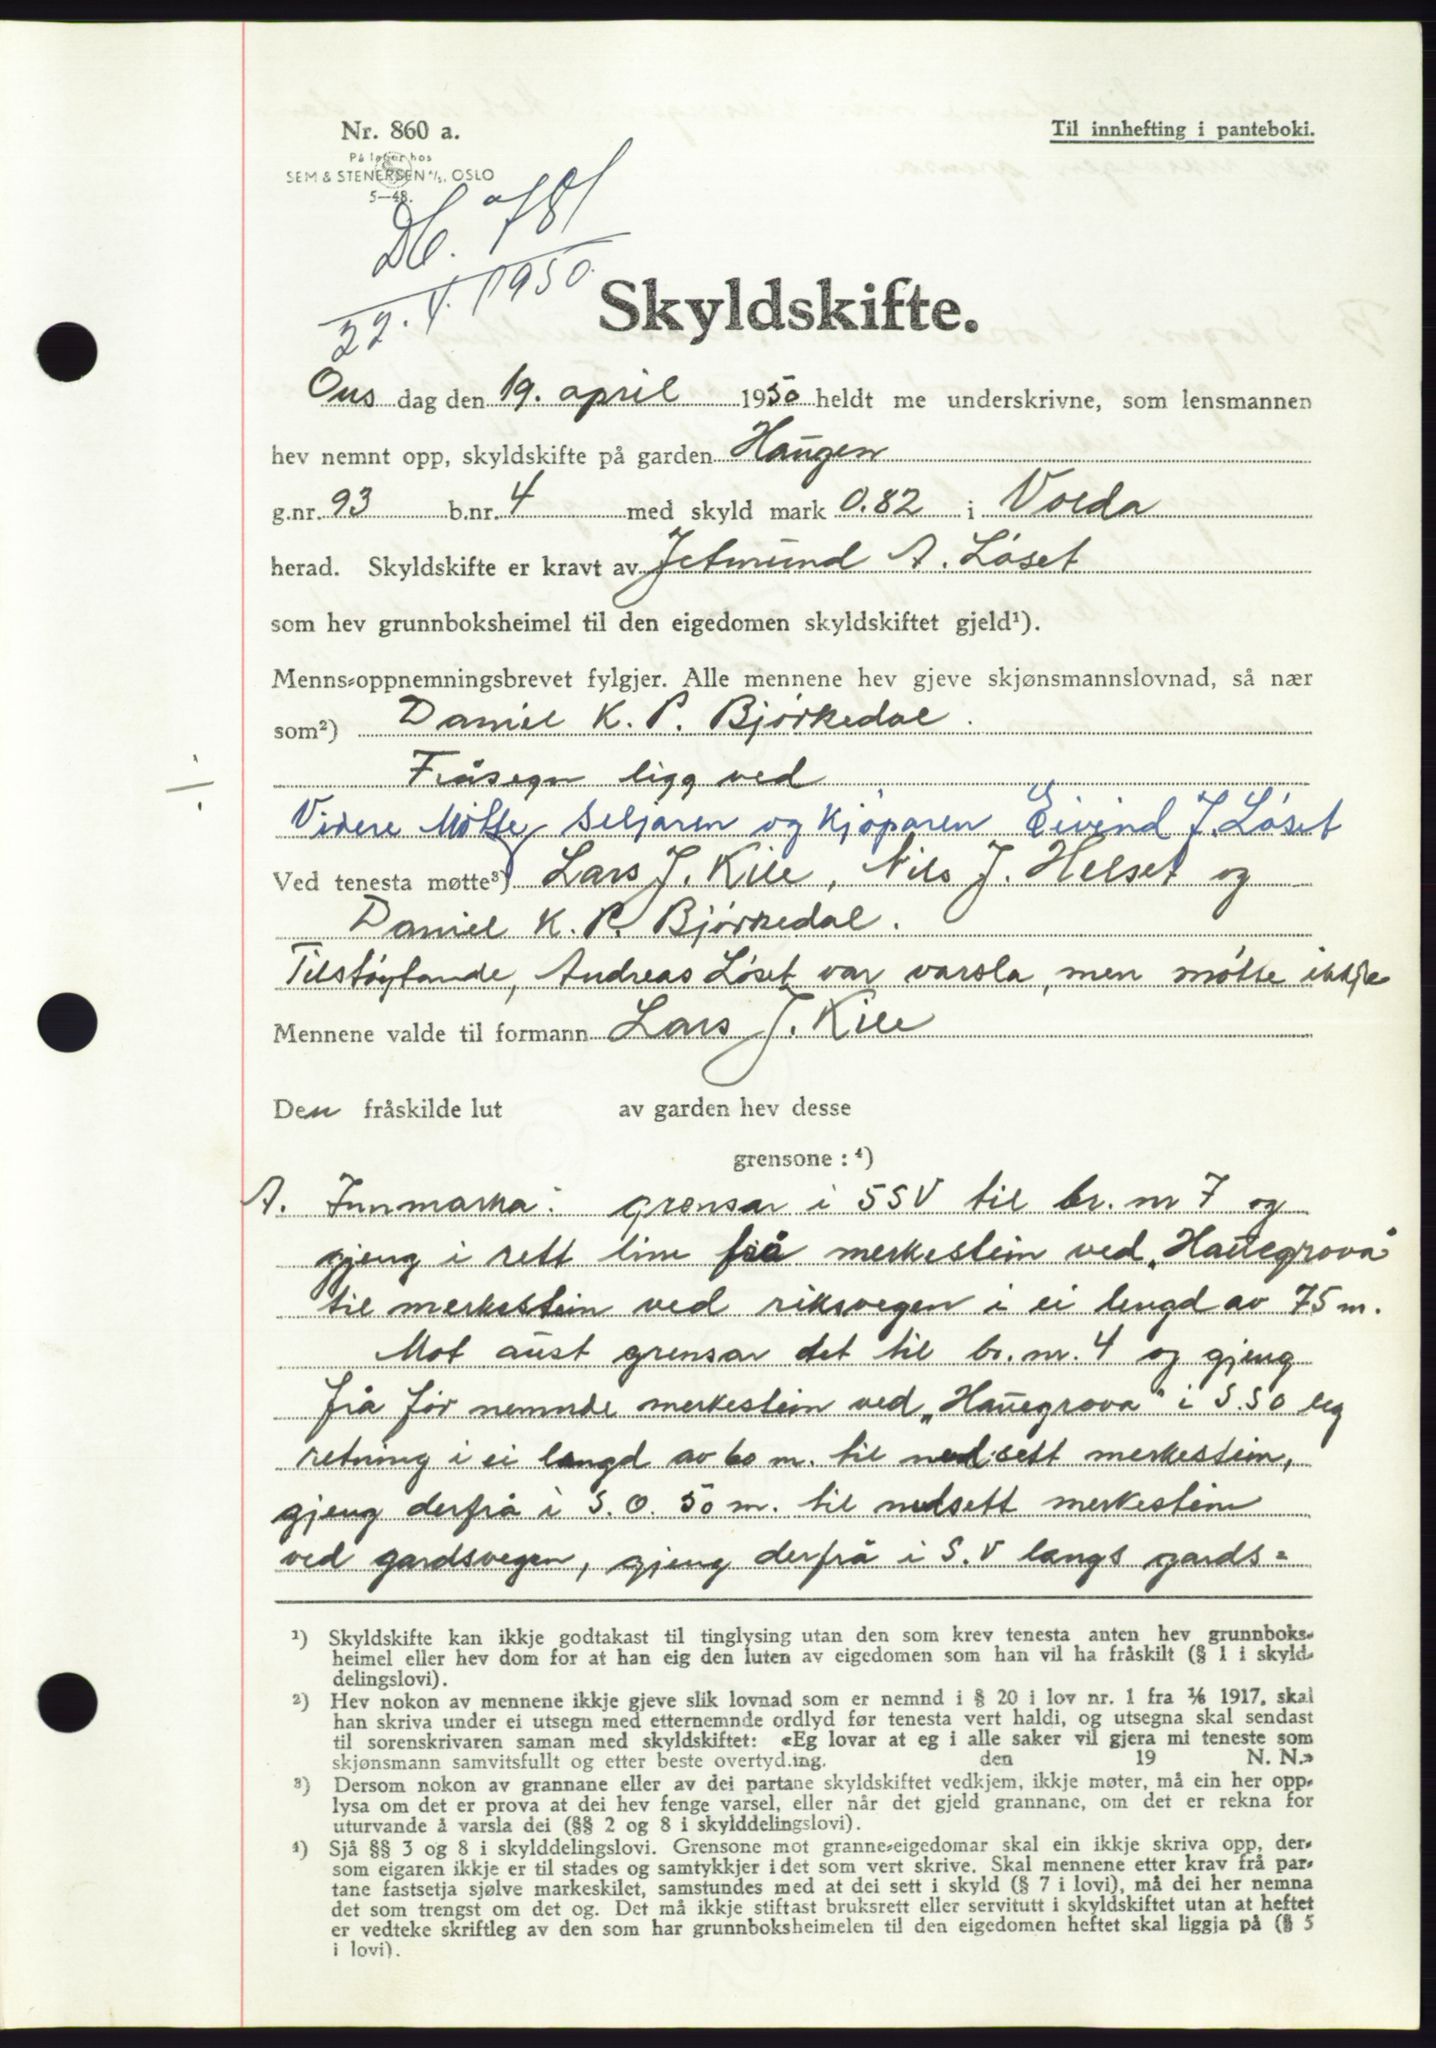 Nr. 860 a.
Til innhefting i panteboki.
På lager hos
SEM & STENERSEN A/S. OSLO
5—48.
Db. 781
22. 4. 1950.
Skyldskifte.
Ons dag den 19. april 1950 heldt me underskrivne, som lensmannen
hev nemnt opp, skyldskifte på garden Haugen
g.nr. 93 b.nr. 4 med skyld mark 0.82 i Volda
herad. Skyldskifte er kravt av Jetmund A. Løset
som hev grunnboksheimel til den eigedomen skyldskiftet gjeld¹).
Menns-oppnemningsbrevet fylgjer. Alle mennene hev gjeve skjønsmannslovnad, så nær
som²) Daniel K. P. Bjørkedal.
Fråsegn ligg ved
Videre møtte seljaren og kjøparen Eivind J. Løset
Ved tenesta møtte³) Lars J. Kile, Nils J. Helset og
Daniel K. P. Bjørkedal.
Tilstøytande, Andreas Løset var varsla, men møtte ikkje
Mennene valde til formann Lars J. Kile
Den fråskilde lut av garden hev desse
grensone: ⁴)
A. Innmarka: grensar i SSV til br. nr 7 og
gjeng i rett line frå merkestein ved „Hauegrova"
til merkestein ved riksvegen i ei lengd av 75 m.
Mot aust grensar det til br. nr. 4 og gjeng
frå før nemnde merkestein ved „Hauegrova" i S.SO leg
retning i ei lengd av 60 m. til nedsett merkestein,
gjeng derfrå i S.O. 50 m. til nedsett merkestein
ved gardsvegen, gjeng derfrå i S.V langs gards=
¹) Skyldskifte kan ikkje godtakast til tinglysing utan den som krev tenesta anten hev grunnboks-
heimel eller hev dom for at han eig den luten av eigedomen som han vil ha fråskilt (§ 1 i skyld-
delingslovi).
²) Hev nokon av mennene ikkje gjeve slik lovnad som er nemnd i § 20 i lov nr. 1 fra 1/6 1917, skal
han skriva under ei utsegn med etternemnde ordlyd før tenesta vert haldi, og utsegna skal sendast
til sorenskrivaren saman med skyldskiftet: «Eg lovar at eg i alle saker vil gjera mi teneste som
skjønsmann samvitsfullt og etter beste overtyding. den 19 N. N.»
³) Dersom nokon av grannane eller av dei partane skyldskiftet vedkjem, ikkje møter, må ein her opp-
lysa om det er prova at dei hev fenge varsel, eller når det gjeld grannane, om det er rekna for
uturvande å varsla dei (§§ 2 og 8 i skylddelingslovi).
⁴) Sjå §§ 3 og 8 i skylddelingslovi. Grensone mot granne-eigedomar skal ein ikkje skriva opp, der-
som eigaren ikkje er til stades og samtykkjer i det som vert skrive. Skal mennene etter krav frå par-
tane fastsetja sjølve markeskilet, samstundes med at dei sett i skyld (§ 7 i lovi), må dei her nemna
det som trengst om det og. Det må ikkje stiftast bruksrett eller servitutt i skyldskiftet utan at heftet
er vedteke skriftleg av den som har grunnboksheimelen til den eigedomen heftet skal liggja på (§ 5
i lovi).